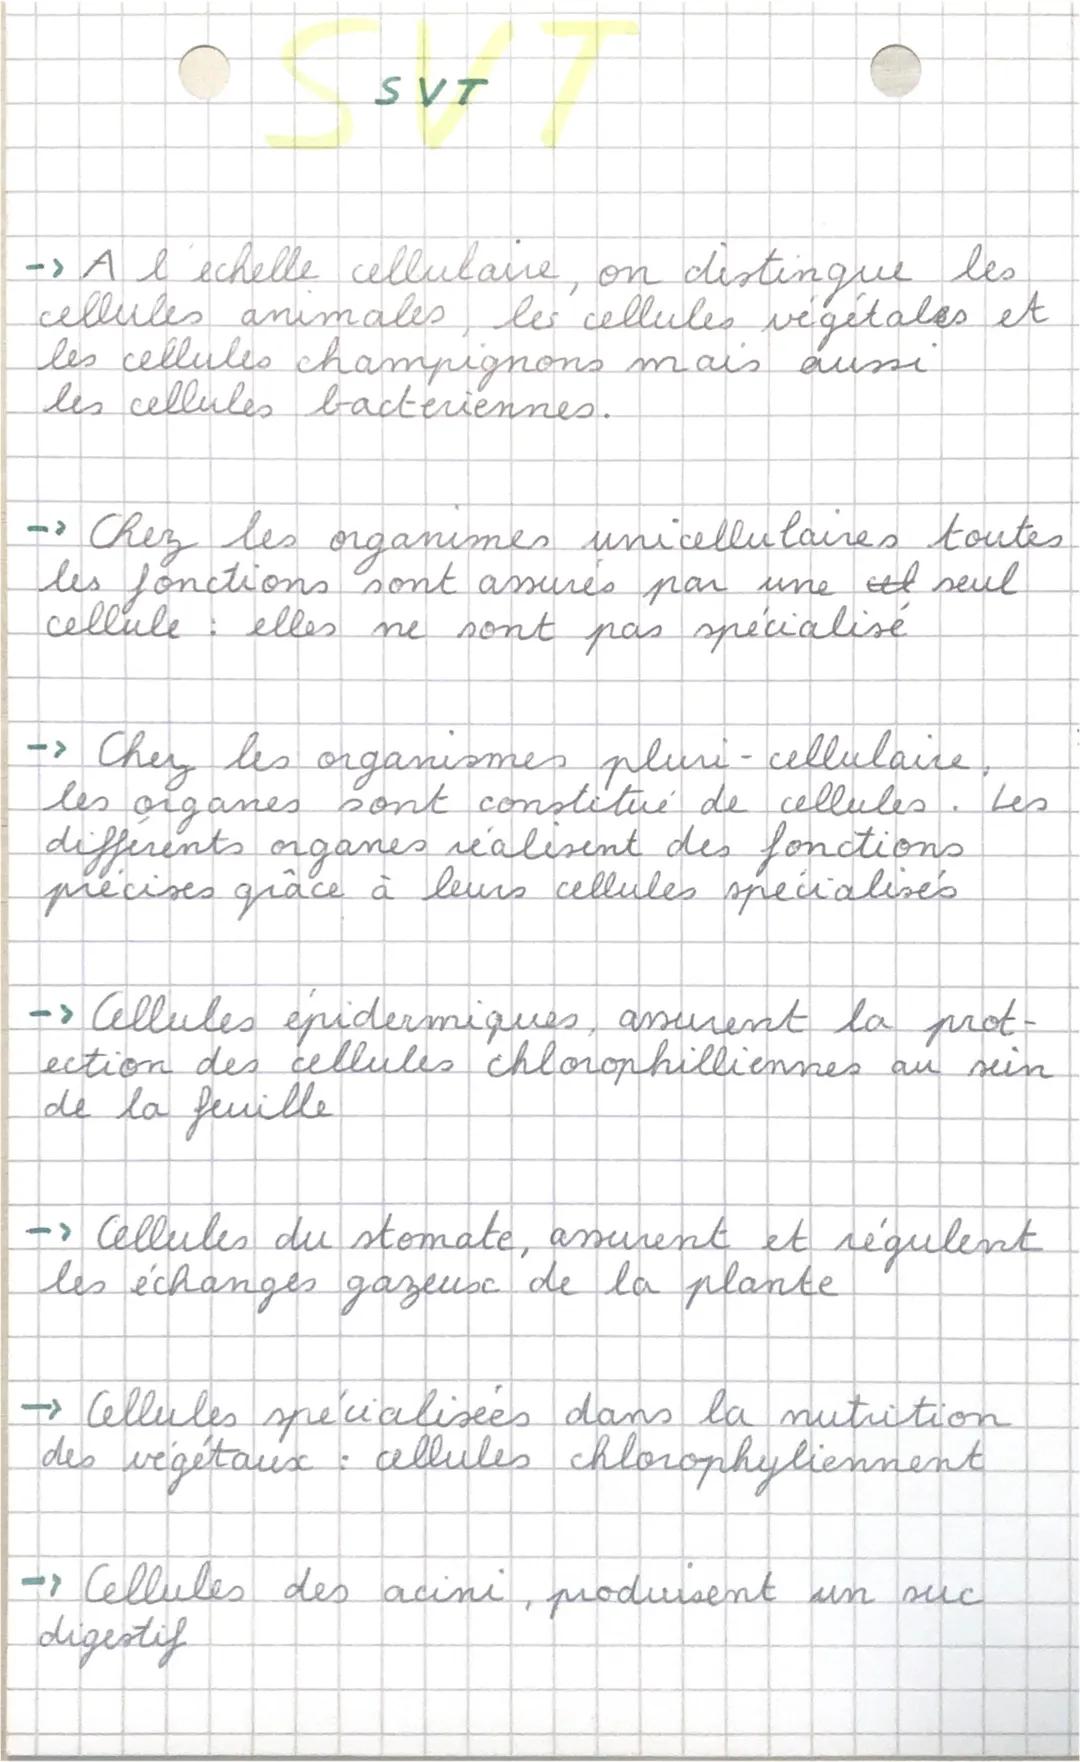 SVT
SVT
-> A l'échelle cellulaire, on distingue les
cellules animales, les cellules végétales et
les cellules champignons mais aussi
les cellules bacteriennes.
-> Chez les organimes unicellulaires toutes
les fonctions sont assurés par une seul
cellule : elles ne sont pas spécialisé
-> Chez les organismes pluri-cellulaire,
les organes sont constitué de cellules. Les
différents organes réalisent des fonctions
précises grâce à leurs cellules spécialisés
-> Cellules épidermiques, assurent la prot-
ection des cellules chlorophilliennes au sein
de la feuille
-> Cellules du stomate, assurent et régulent
les échanges gazeux de la plante
-> Cellules spécialisées dans la nutrition
des végétaux : cellules chlorophyliennent
-> Cellules des acini, produisent un suc
digestif